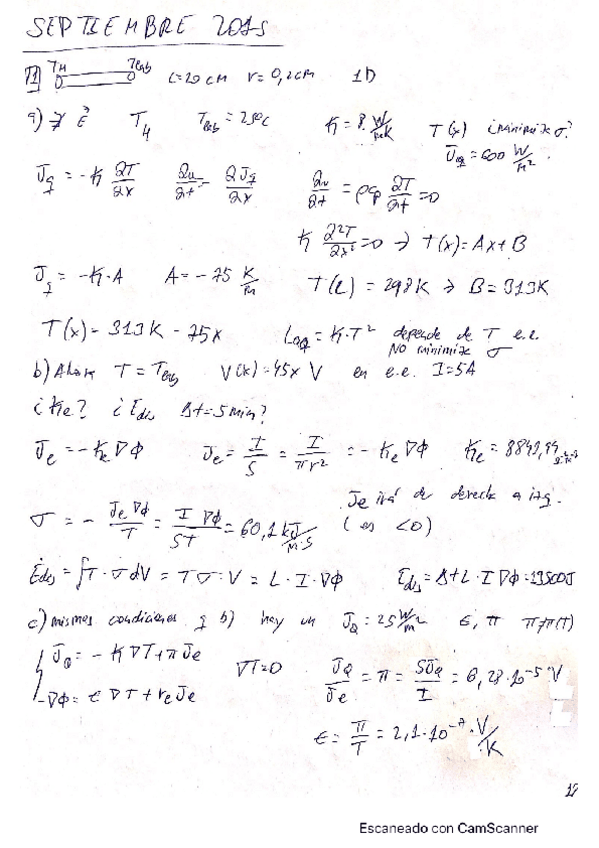 SEPTIEMBRE 2015
T1 T_H T_amb L=20cm r=0,2cm 1D
a) ∄ Ė T_H T_amb = 25ºC K = 8 W/mK T(x) ¿minimize σ?
J_q = 600 W/m²
J_q = -K ∂T/∂x ∂u/∂t = -∂J_q/∂x ∂u/∂t = ρcp ∂T/∂t = 0
K ∂²T/∂x² = 0 → T(x) = Ax + B
J_q = -K·A A = -75 K/m T(L) = 298K → B = 313K
T(x) = 313K - 75x L_QQ = K·T² depende de T e.e.
NO minimize σ
b) Ahora T = T_amb V(x) = 45x V en e.e. I = 5A
¿Ke? ¿E_dis Δt = 5min?
J_e = -K_e ∇Φ J_e = I/S = I/πr² = -K_e ∇Φ K_e = 8841,94
J_e irá de derecha a izq.
(es <0)
σ = - J_e ∇Φ/T = I ∇Φ/ST = 60,1 kJ/m·s
Ė_dis = ∫T·σ dV = Tσ·V = L·I·∇Φ E_dis = Δt L·I ∇Φ = 13500J
c) mismas condiciones q b) hay un J_Q = 25 W/m² ε, π π≠π(T)
J_Q = -K ∇T + π J_e ∇T = 0 J_Q/J_e = π = SJ_Q/I = 6,28·10⁻⁵ V
-∇Φ = ε ∇T + r_e J_e
ε = π/T = 2,1·10⁻⁷ V/K
12
Escaneado con CamScanner